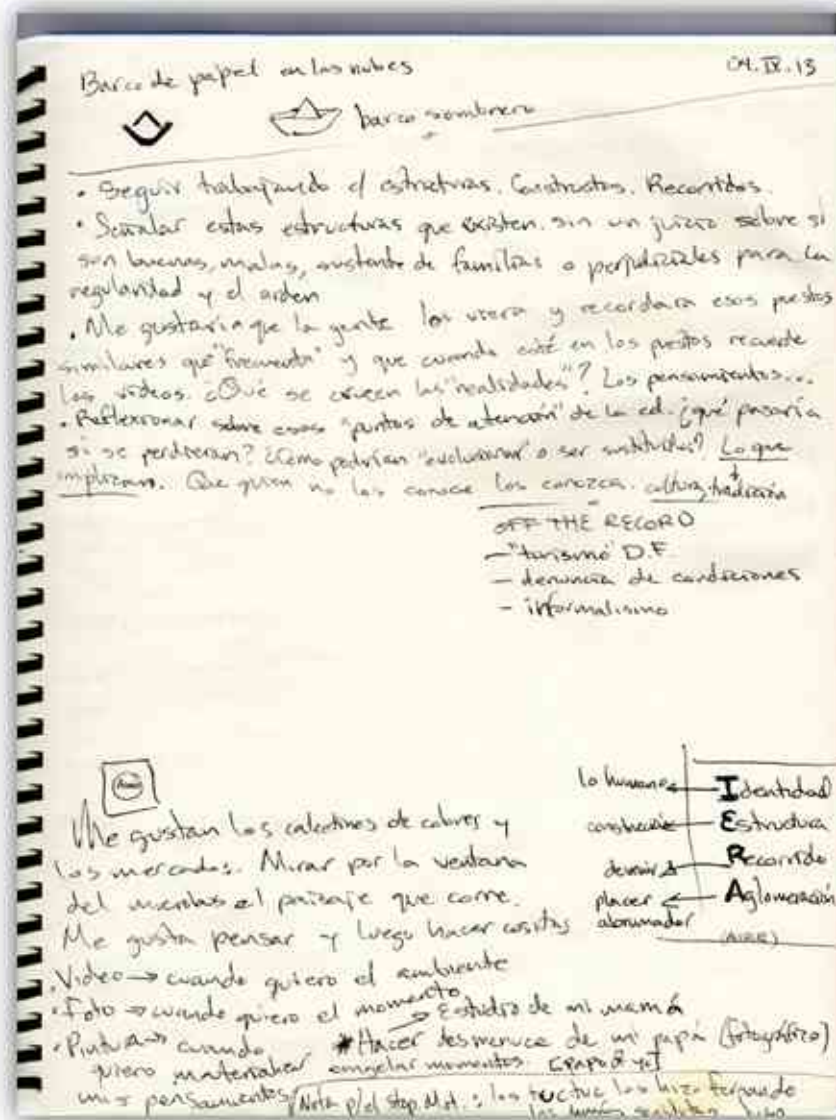 Barco de papel en las nubes
04.IX.13
barco sombrero
• Seguir trabajando c/ estructuras. Constructos. Recorridos.
• Señalar estas estructuras que existen. sin un juicio sobre si
son buenas, malas, sustento de familias o perjudiciales para la
regularidad y el orden
• Me gustaría que la gente los viera y recordara esos puestos
similares que "frecuenta" y que cuando esté en los puestos recuerde
los videos. ¿Qué se crucen las "realidades"? Los pensamientos...
• Reflexionar sobre esos "puntos de atención" de la cd. ¿qué pasaría
si se perdieran? ¿Cómo podrían "evolucionar" o ser sustituidos? Lo que
implican. Que quien no los conoce los conozca. cultura, tradición
OFF THE RECORD
- "turismo" D.F.
- denuncia de condiciones
- informalismo
lo humano Identidad
Estructura
devenir Recorrido
placer Aglomeración
abrumador
(AIRE)
Me gustan los calcetines de colores y
los mercados. Mirar por la ventana
del microbus el paisaje que corre.
Me gusta pensar y luego hacer cositas
• Video → cuando quiero el ambiente
• Foto → cuando quiero el momento
→ Estudio de mi mamá
• Pintura → cuando
* Hacer desmenuce de mi papá (fotográfico)
quiero materializar
congelar momentos [PAPO & YO]
mis pensamientos
Nota p/el stop Mot.: los las hizo